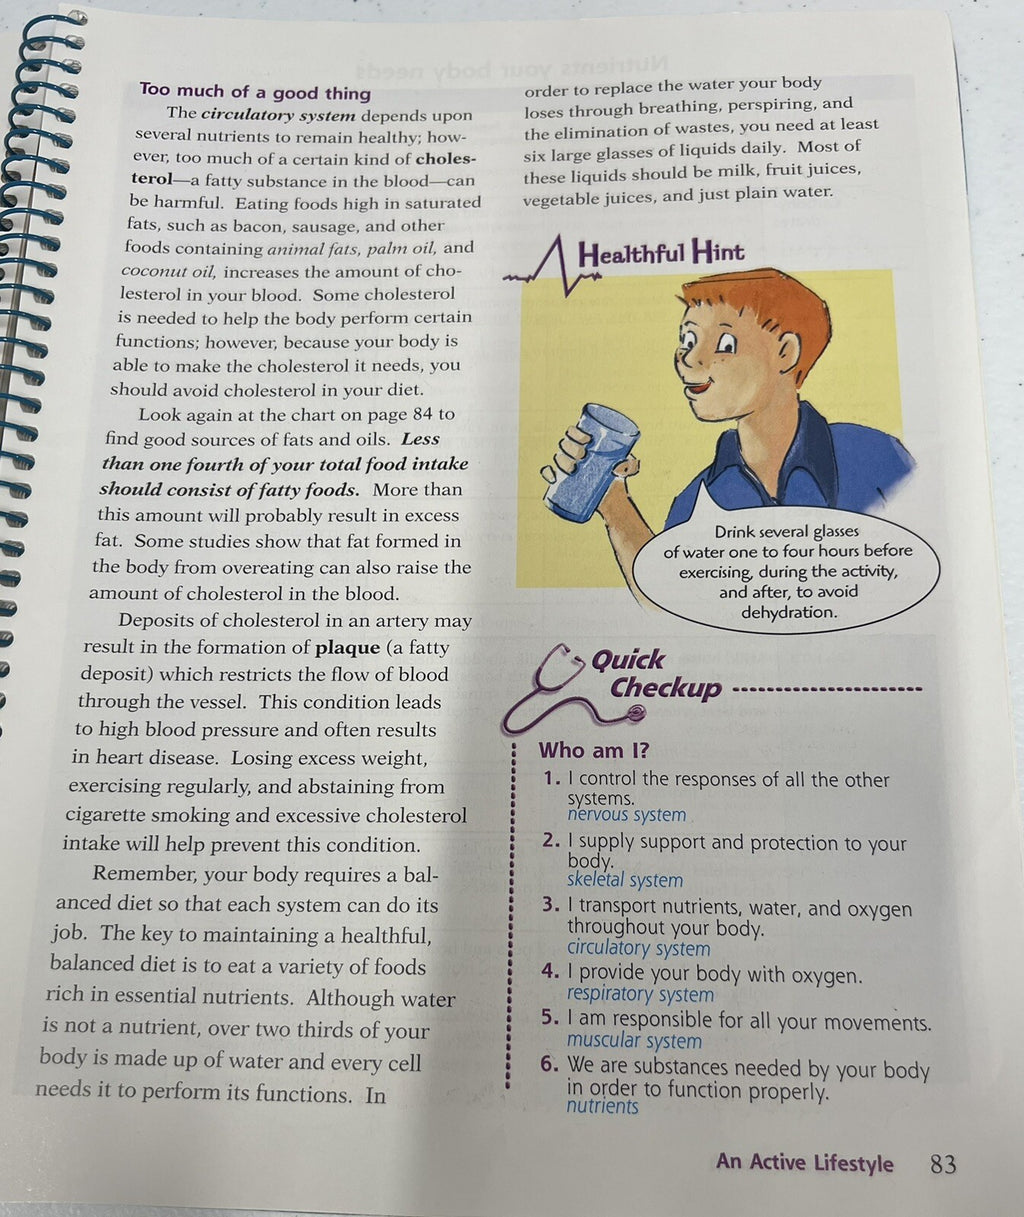 Too much of a good thing
The circulatory system depends upon
several nutrients to remain healthy; how-
ever, too much of a certain kind of choles-
terol—a fatty substance in the blood—can
be harmful. Eating foods high in saturated
fats, such as bacon, sausage, and other
foods containing animal fats, palm oil, and
coconut oil, increases the amount of cho-
lesterol in your blood. Some cholesterol
is needed to help the body perform certain
functions; however, because your body is
able to make the cholesterol it needs, you
should avoid cholesterol in your diet.
Look again at the chart on page 84 to
find good sources of fats and oils. Less
than one fourth of your total food intake
should consist of fatty foods. More than
this amount will probably result in excess
fat. Some studies show that fat formed in
the body from overeating can also raise the
amount of cholesterol in the blood.
Deposits of cholesterol in an artery may
result in the formation of plaque (a fatty
deposit) which restricts the flow of blood
through the vessel. This condition leads
to high blood pressure and often results
in heart disease. Losing excess weight,
exercising regularly, and abstaining from
cigarette smoking and excessive cholesterol
intake will help prevent this condition.
Remember, your body requires a bal-
anced diet so that each system can do its
job. The key to maintaining a healthful,
balanced diet is to eat a variety of foods
rich in essential nutrients. Although water
is not a nutrient, over two thirds of your
body is made up of water and every cell
needs it to perform its functions. In
order to replace the water your body
loses through breathing, perspiring, and
the elimination of wastes, you need at least
six large glasses of liquids daily. Most of
these liquids should be milk, fruit juices,
vegetable juices, and just plain water.
Healthful Hint
Drink several glasses
of water one to four hours before
exercising, during the activity,
and after, to avoid
dehydration.
Quick
Checkup
Who am I?
1. I control the responses of all the other
systems.
nervous system
2. I supply support and protection to your
body.
skeletal system
3. I transport nutrients, water, and oxygen
throughout your body.
circulatory system
4. I provide your body with oxygen.
respiratory system
5. I am responsible for all your movements.
muscular system
6. We are substances needed by your body
in order to function properly.
nutrients
An Active Lifestyle 83